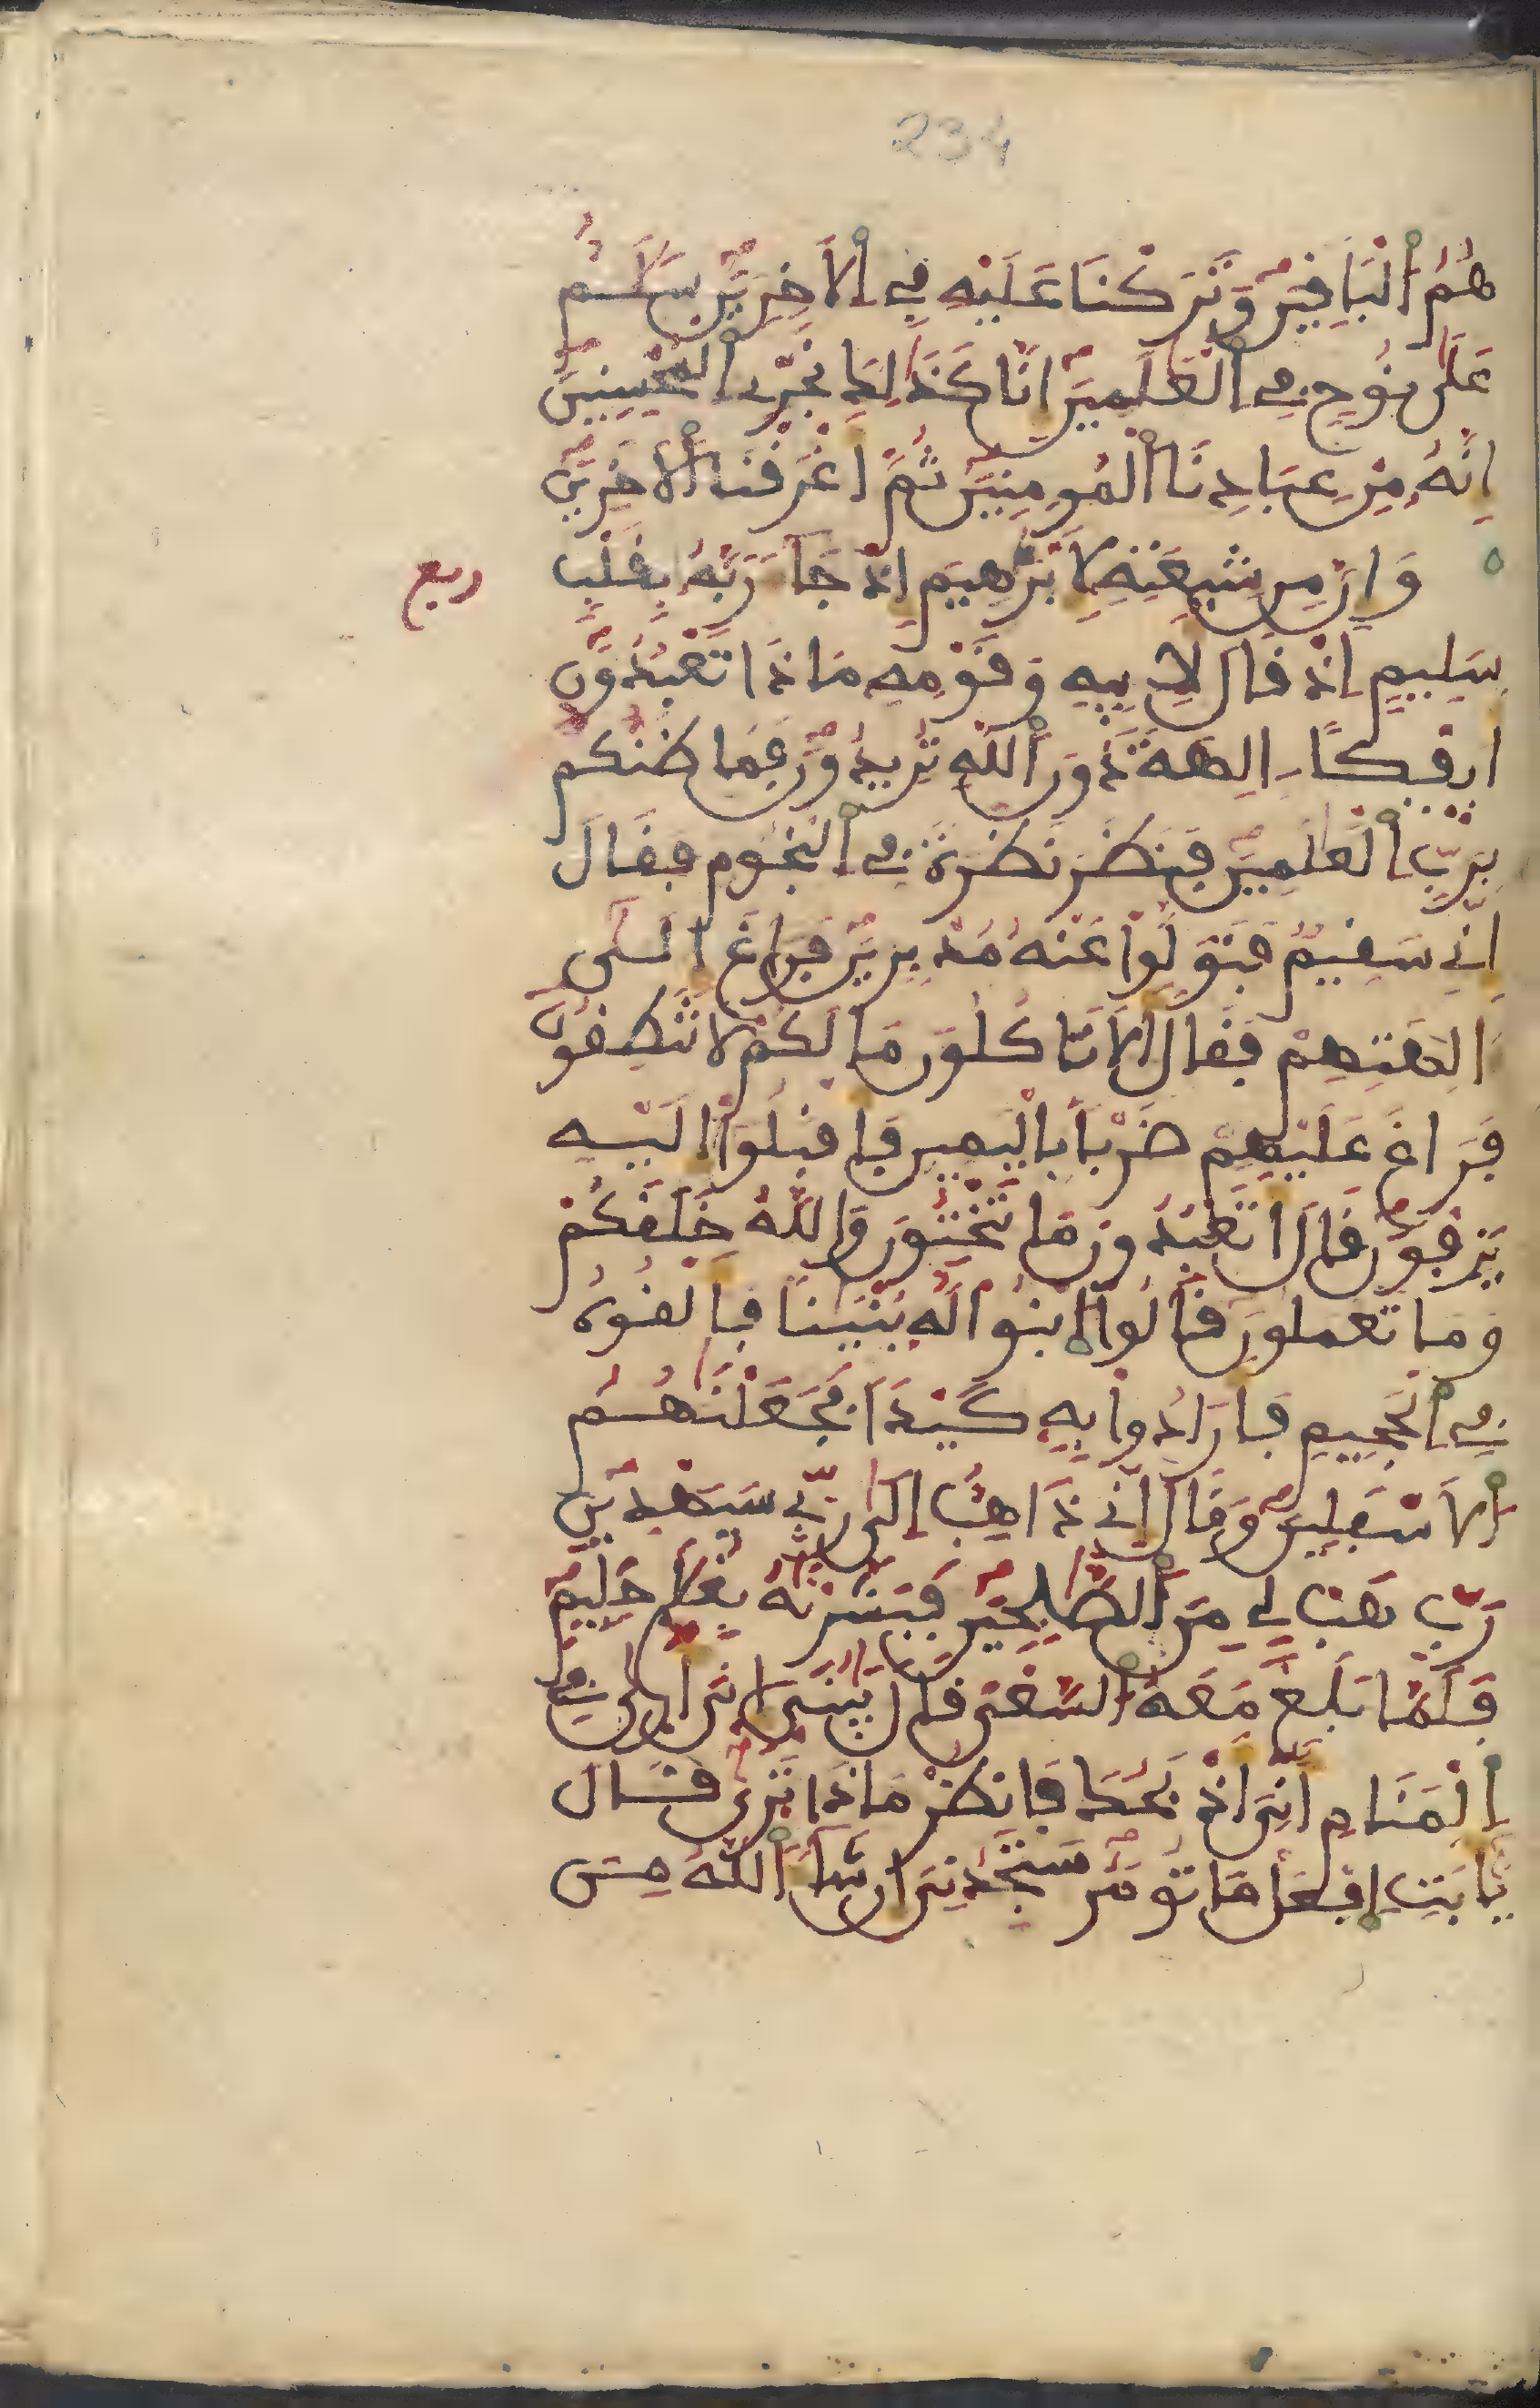 234
هُمُ اُ۬لْبَافِينَ وَتَرَكْنَا عَلَيْهِ فِے اِ۬لَاخِرِينَ سَلَٰمٌ
عَلَىٰ نُوحٍ فِے اِ۬لْعَٰلَمِينَ إِنَّا كَذَٰلِكَ نَجْزِے اِ۬لْمُحْسِنِينَ
إِنَّهُۥ مِنْ عِبَادِنَا اَ۬لْمُومِنِينَ ثُمَّ أَغْرَفْنَا اَ۬لَاخَرِينَ
وَإِنَّ مِن شِيعَتِهِۦ لَإِبْرَٰهِيمَ إِذْ جَآءَ رَبَّهُۥ بِفَلْبٍ
ربع
سَلِيمٍ إِذْ فَالَ لِأَبِيهِ وَفَوْمِهِۦ مَاذَا تَعْبُدُونَ
أَئِفْكاً اٰلِهَةً دُونَ اَ۬للَّهِ تُرِيدُونَ فَمَا ظَنُّكُم
بِرَبِّ اِ۬لْعَٰلَمِينَ فَنَظَرَ نَظْرَةً فِے اِ۬لنُّجُومِ فَفَالَ
إِنِّے سَفِيمٌ فَتَوَلَّوْا عَنْهُ مُدْبِرِينَ فَرَاغَ إِلَىٰٓ
ءَالِهَتِهِمْ فَفَالَ أَلَا تَاكُلُونَ مَا لَكُمْ لَا تَنطِفُونَ
فَرَاغَ عَلَيْهِمْ ضَرْباَۢ بِالْيَمِينِ فَأَفْبَلُوٓاْ إِلَيْهِ
يَزِفُّونَ فَالَ أَتَعْبُدُونَ مَا تَنْحِتُونَ وَاللَّهُ خَلَفَكُمْ
وَمَا تَعْمَلُونَ فَالُواْ اُ۪بْنُواْ لَهُۥ بُنْيَٰناً فَأَلْفُوهُ
فِے اِ۬لْجَحِيمِ فَأَرَادُواْ بِهِۦ كَيْداً فَجَعَلْنَٰهُمُ
اُ۬لَاسْفَلِينَ وَفَالَ إِنِّے ذَاهِبٌ اِلَىٰ رَبِّے سَيَهْدِينِ
رَبِّ هَبْ لِے مِنَ اَ۬لصَّٰلِحِينَ فَبَشَّرْنَٰهُ بِغُلَٰمٍ حَلِيمٍ
فَلَمَّا بَلَغَ مَعَهُ اُ۬لسَّعْيَ فَالَ يَٰبُنَيِّ إِنِّيَ أَرَىٰ فِے
اِ۬لْمَنَامِ أَنِّيَ أَذْبَحُكَ فَانظُرْ مَاذَا تَرَىٰ فَالَ
يَٰٓأَبَتِ اِ۪فْعَلْ مَا تُومَرُ سَتَجِدُنِيَ إِن شَآءَ اَ۬للَّهُ مِنَ